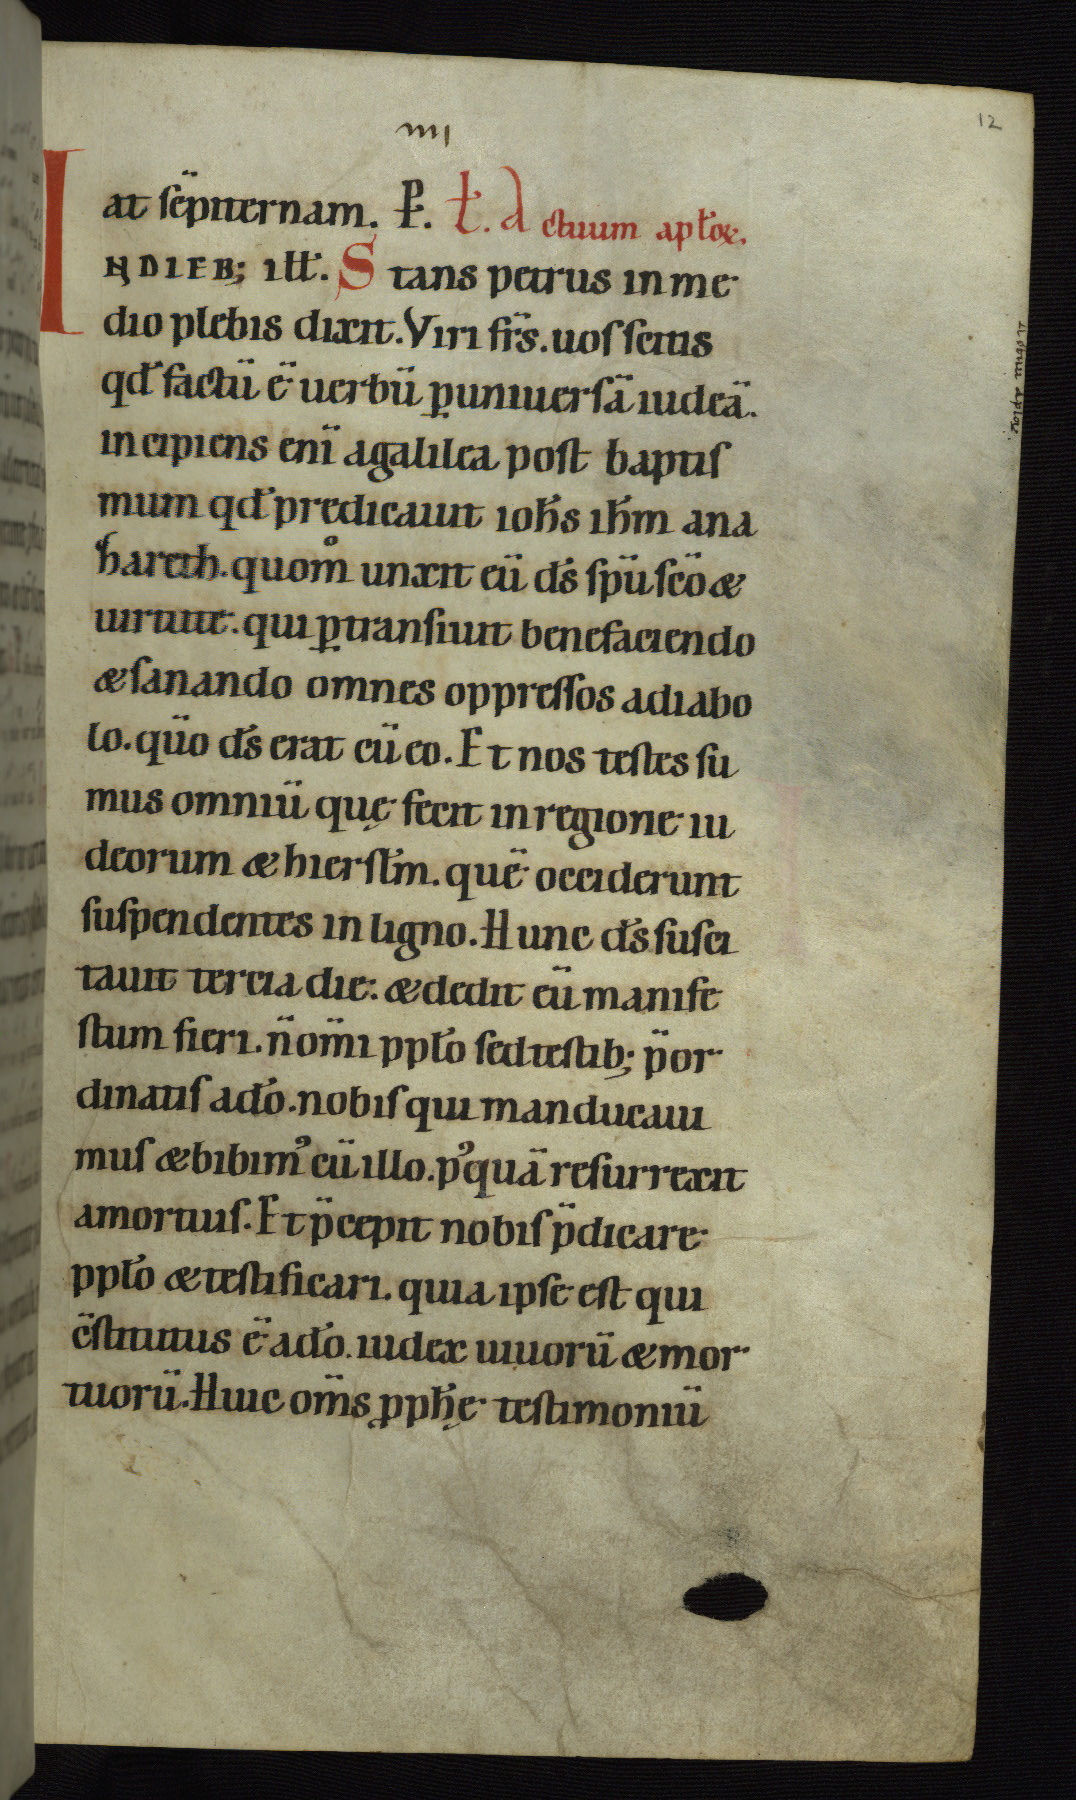 IIII
12
at sēpiternam. P. t. Actuum apłoꝝ.
INDIEB; ıłł. Stans petrus in me
dio plebis dixit. Viri fr̄s. uos scitis
qđ factū ē uerbū ꝑuniuersā iudeā.
incipiens enī agalilea post baptis
mum qđ predicauit ioħs iħm ana
hareth. quomͦ unxit eū d̄s sp̄u sc̄o &
uirtute. qui ꝑtransiuit benefaciendo
& sanando omnes oppressos adiabo
lo. qūo d̄s erat cū eo. Et nos testes su
mus omniū quę fecit in regione iu
deorum & hiersłm. quē occiderunt
suspendentes in ligno. Hunc d̄s susci
tauit tercia die: & dedit eū manife
stum fieri. n̄ om̄i ppło sed testib; p̄or
dinatis adō. nobis qui manducaui
mus & bibimꝰ cū illo. pꝰquā resurrexit
amortuis. Et p̄cepit nobis p̄dicare
ppło & testificari. quia ipse est qui
c̄stitutus ē adō. iudex uiuorū & mor
tuorū. Huic om̄s ꝓpħę testimoniū